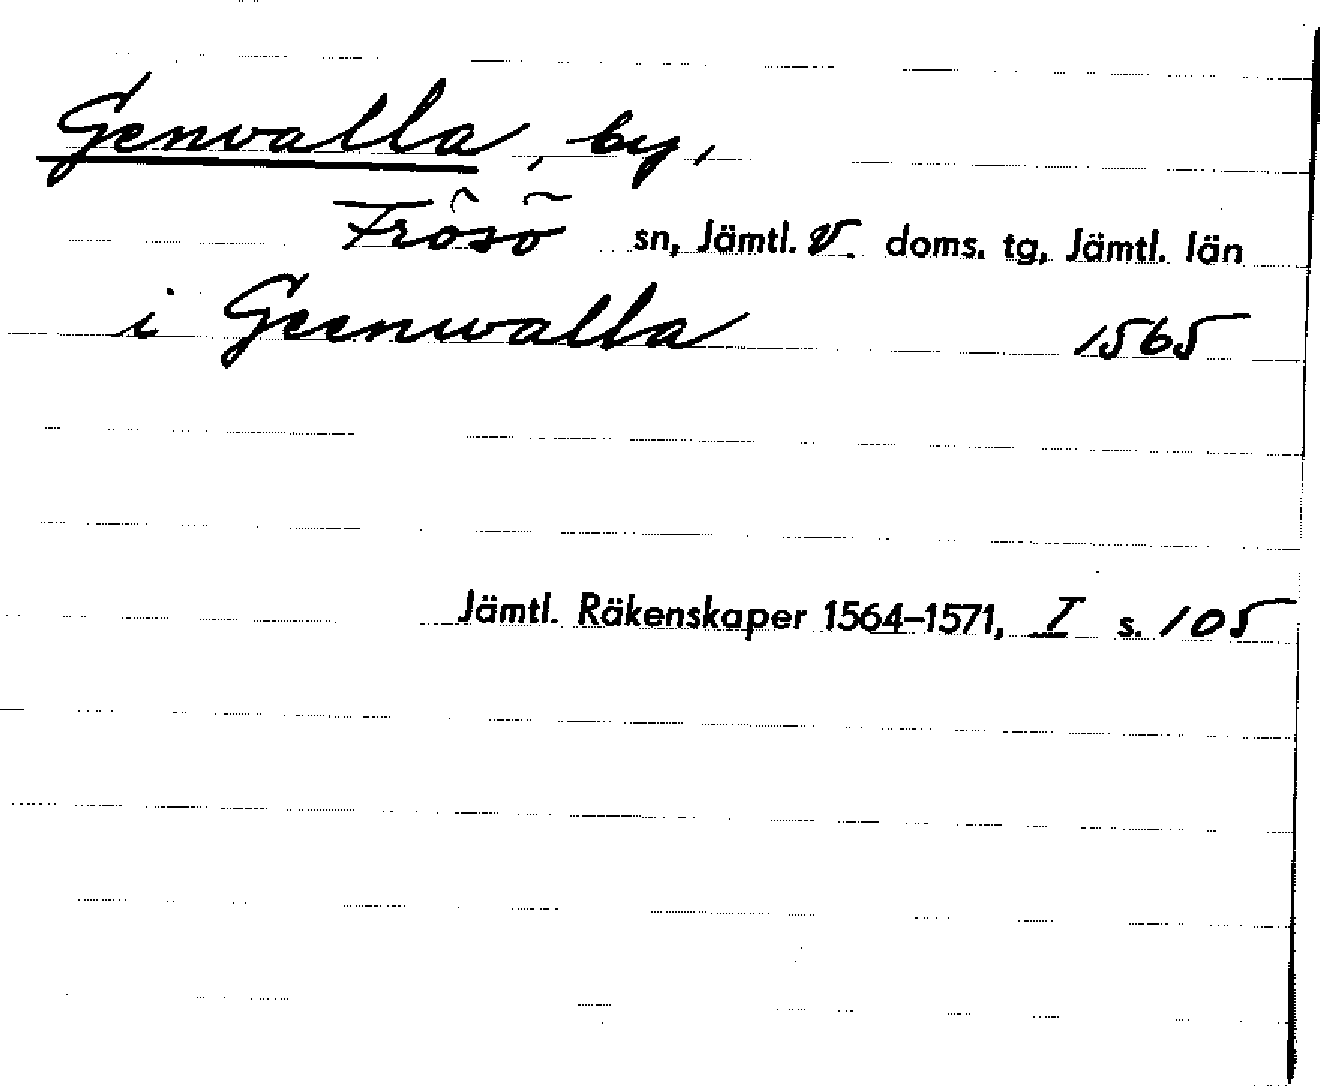 Genvalla, by,
Frösö sn, Jämtl. v. doms. tg, Jämtl. län
i Geenwalla 1565
Jämtl. Räkenskaper 1564–1571, I s. 105